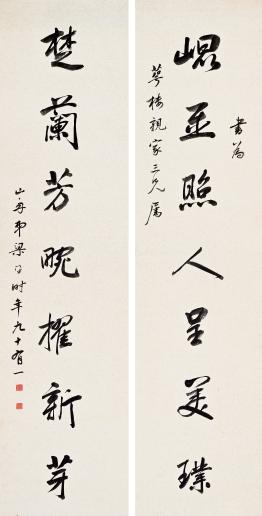 崐玉照人呈美璞
書為
萼樓親家三兄屬
楚蘭芳畹擢新芽
山舟弟梁同书时年九十有一